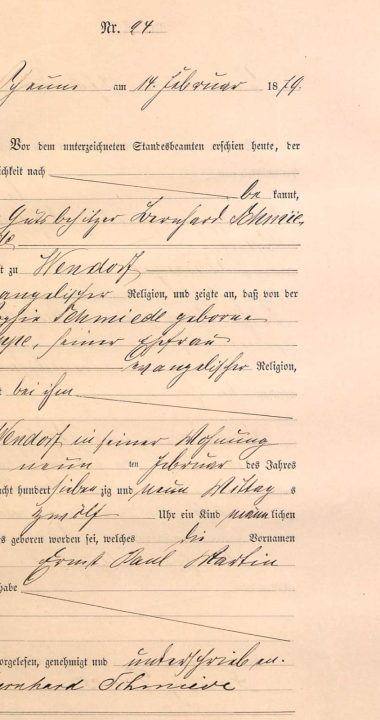 Nr. 94.
am 14. Februar 1879.
Vor dem unterzeichneten Standesbeamten erschien heute, der
lichkeit nach
be kannt,
Gutsbesitzer Bernhard Schmie-
de
t zu Wendorf
angelischer Religion, und zeigte an, daß von der
ophie Schmiede geborne
, seiner Ehefrau
evangelischer Religion,
t bei ihm
Wendorf in seiner Wohnung
neun ten Februar des Jahres
acht hundert sieben zig und neun Mittag s
zwölf Uhr ein Kind männ lichen
s geboren worden sei, welches die Vornamen
Ernst Paul Martin
habe
orgelesen, genehmigt und unterschrieben.
ernhard Schmiede